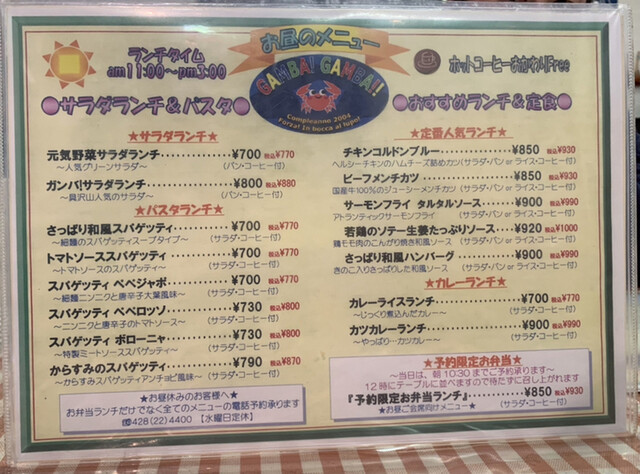 お昼のメニュー
ランチタイム
am11:00～pm3:00
GAMBA! GAMBA!!
Compleanno 2004
Forza! In bocca al lupo!
ホットコーヒーおかわりFree
●サラダランチ＆パスタ●
★サラダランチ★
元気野菜サラダランチ・・・・・・・・・・・¥700 税込¥770
～人気グリーンサラダ～ (パン・コーヒー付)
ガンバ!サラダランチ・・・・・・・・・・・¥800 税込¥880
～具沢山人気のサラダ～ (パン・コーヒー付)
★パスタランチ★
さっぱり和風スパゲッティ・・・・・・¥700 税込¥770
～細麺のスパゲッティスープタイプ～ (サラダ・コーヒー付)
トマトソーススパゲッティ・・・・・・¥700 税込¥770
～トマトソースのスパゲッティ～ (サラダ・コーヒー付)
スパゲッティ ペペジャポ・・・・・・¥700 税込¥770
～細麺ニンニクと唐辛子大葉風味～ (サラダ・コーヒー付)
スパゲッティ ペペロッソ・・・・・・¥730 税込¥800
～ニンニクと唐辛子のトマトソース～ (サラダ・コーヒー付)
スパゲッティ ボローニャ・・・・・・¥730 税込¥800
～特製ミートソーススパゲッティ～ (サラダ・コーヒー付)
からすみのスパゲッティ・・・・・・・¥790 税込¥870
～からすみスパゲッティアンチョビ風味～ (サラダ・コーヒー付)
★お昼休みのお客様へ★
お弁当ランチだけでなく全てのメニューの電話予約承ります
☎428(22)4400 【水曜日定休】
●おすすめランチ＆定食●
★定番人気ランチ★
チキンコルドンブルー・・・・・・・・¥850 税込¥930
ヘルシーチキンのハムチーズ詰めカツ (サラダ・パン or ライス・コーヒー付)
ビーフメンチカツ・・・・・・・・・・・・¥850 税込¥930
国産牛100%のジューシーメンチカツ (サラダ・パン or ライス・コーヒー付)
サーモンフライ タルタルソース・・・・¥900 税込¥990
アトランティックサーモンフライ (サラダ・パン or ライス・コーヒー付)
若鶏のソテー生姜たっぷりソース・・・¥920 税込¥1000
鶏モモ肉のこんがり焼き和風ソース (サラダ・パン or ライス・コーヒー付)
さっぱり和風ハンバーグ・・・・・・・¥900 税込¥990
きのこ入りさっぱりした和風ソース (サラダ・パン or ライス・コーヒー付)
★カレーランチ★
カレーライスランチ・・・・・・・・・・¥700 税込¥770
～じっくり煮込んだカレー～ (サラダ・コーヒー付)
カツカレーランチ・・・・・・・・・・・・¥900 税込¥990
～やっぱり・カツカレー～ (サラダ・コーヒー付)
★予約限定お弁当★
～当日は、朝10:30までご予約承ります～
12時にテーブルに並べますので待たずに召し上がれます
『予約限定お弁当ランチ』・・・・・・¥850 税込¥930
★お昼ご会席向けメニュー★ (サラダ・コーヒー付)